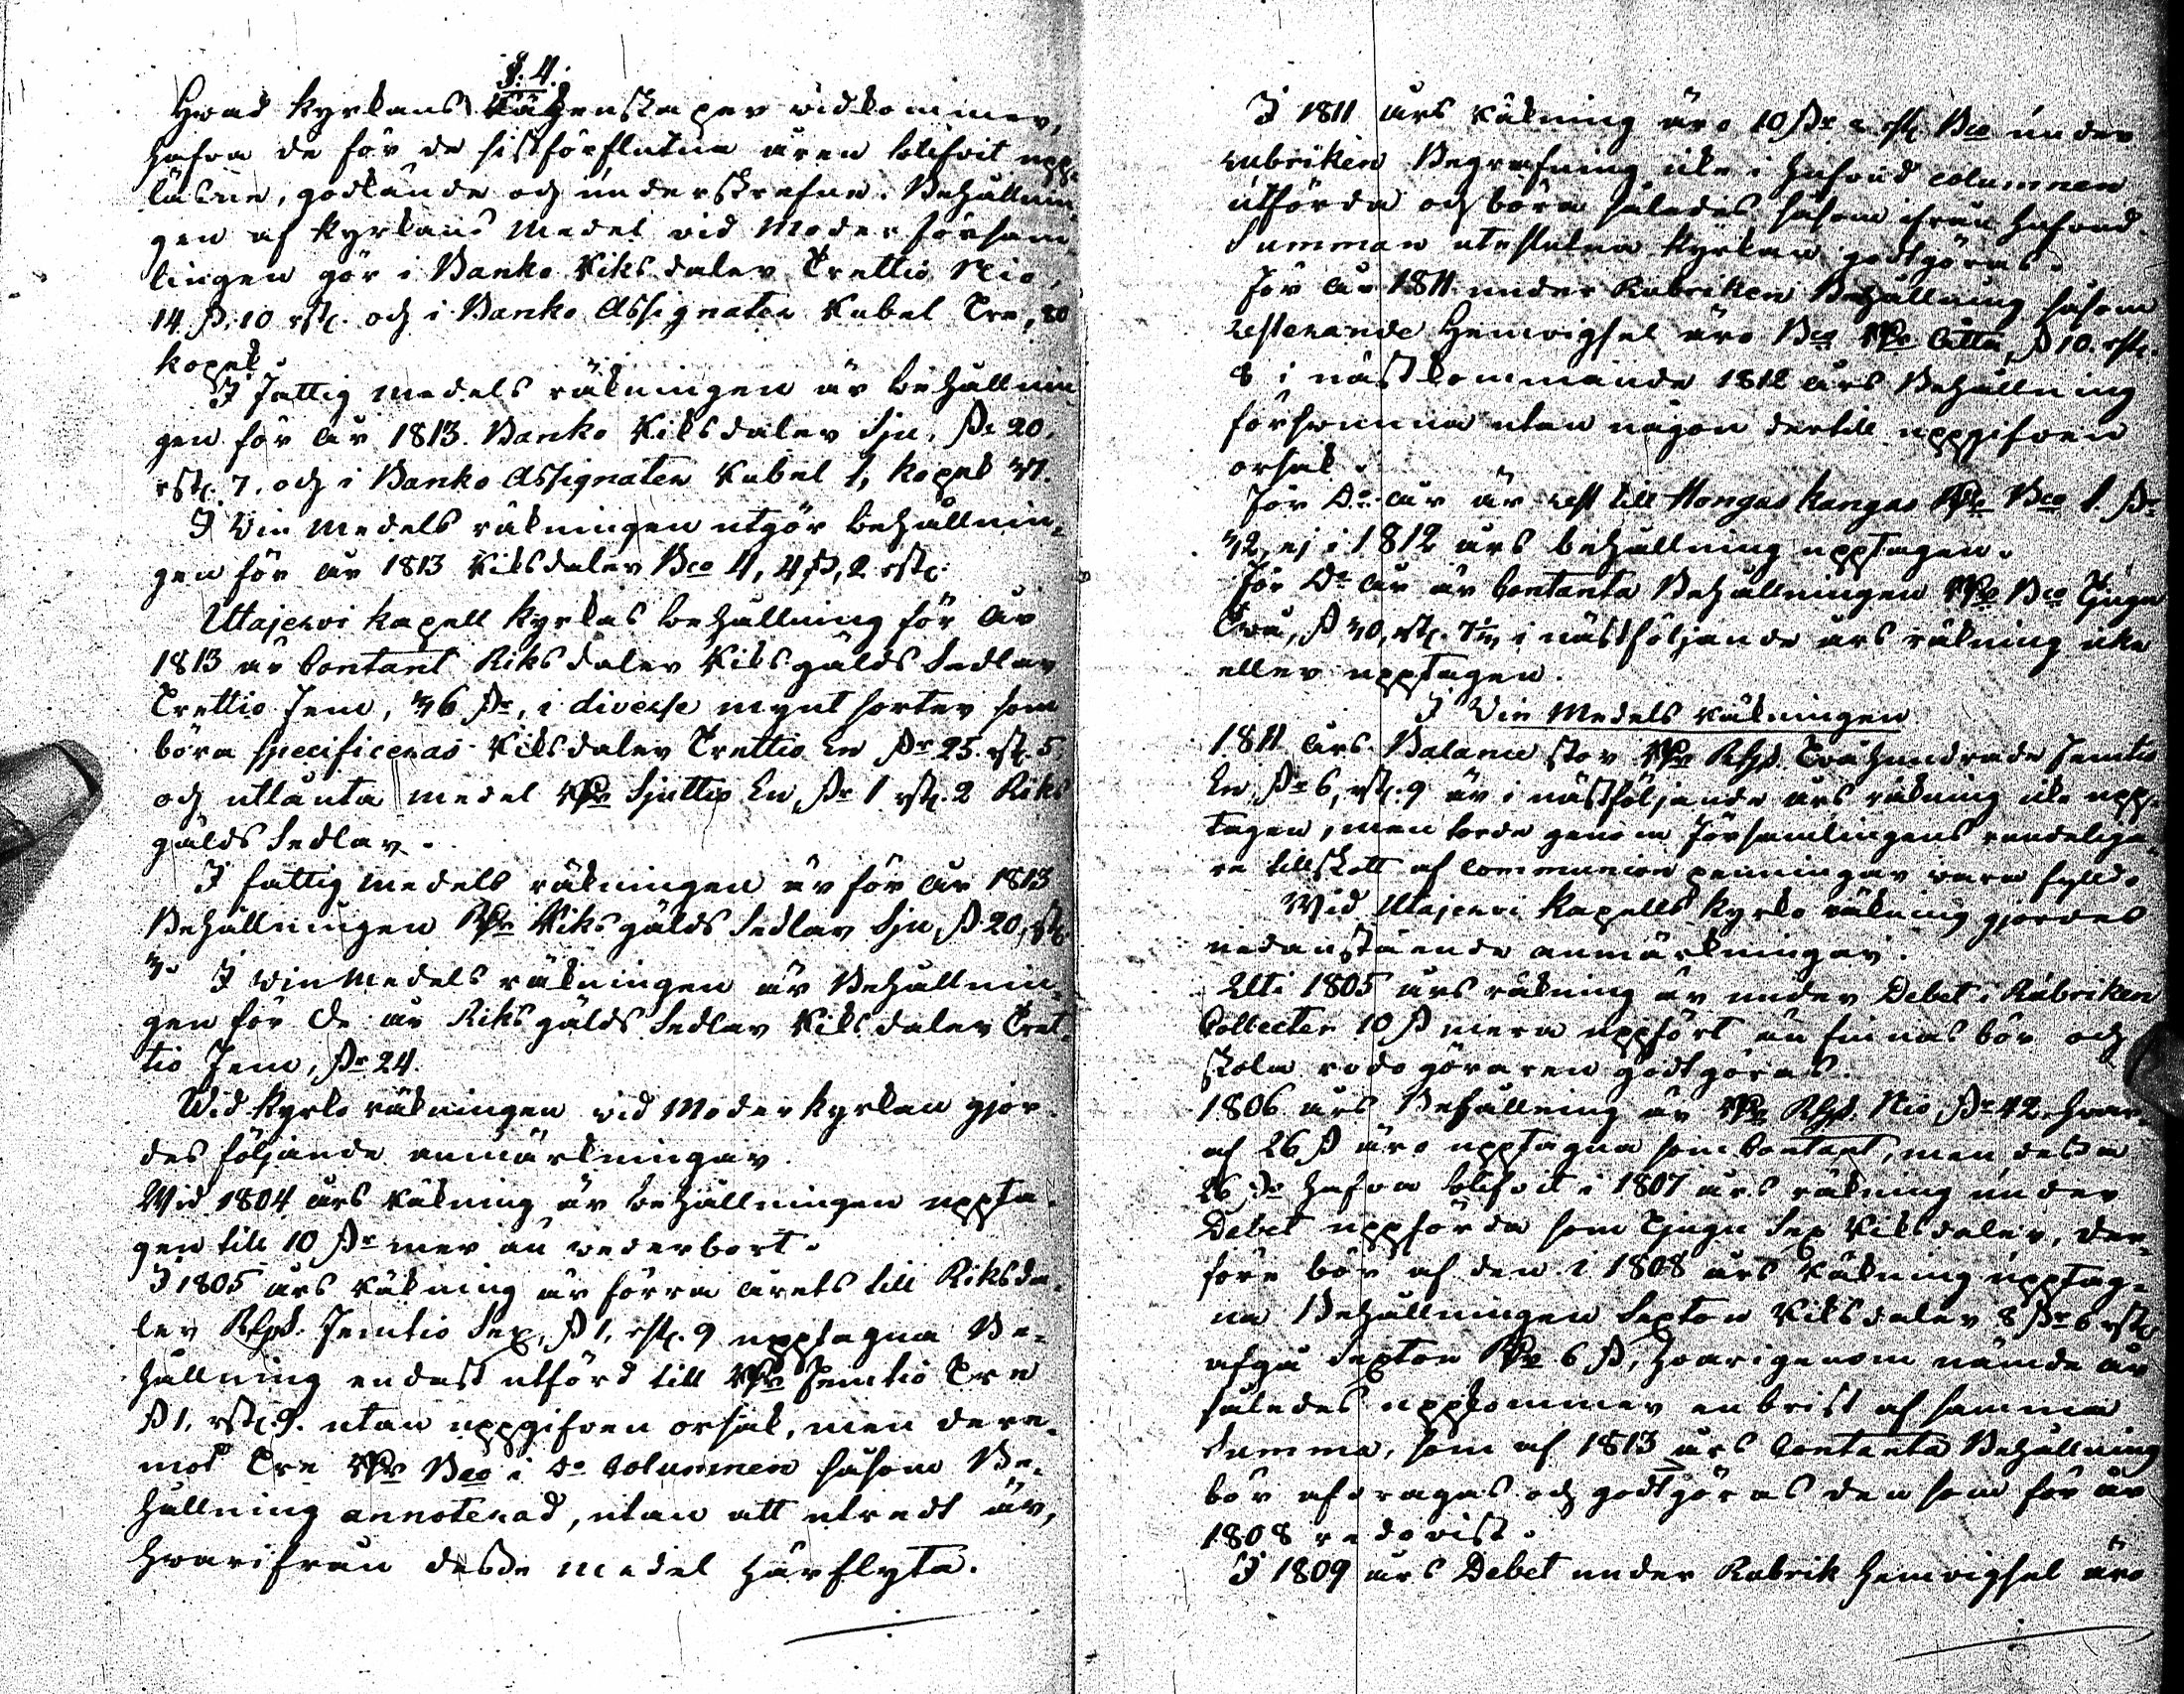 §. 4.
Hvad Kyrkans Räkenskaper vidkommer,
hafva de för de sistförflutna åren blifvit upp-
läsne, godkände och underskrefne. Behållnin-
gen af Kyrkans Medel vid Moder Församl
lingen gör i Banko Riksdaler Trettio Nio,
14 ß. 10 rst. och i Banko Assignater Rubel Tre, 80
kopek.
I Fattig medels räkningen är behållnin
gen för År 1813. Banko Riksdaler Sju, ß. 20.
rst. 7. och i Banko Assignater Rubel 1, kopek 71.
I Vin Medels räkningen utgör behållnin-
gen för år 1813 Riksdaler Bco 4, 4 ß, 2 rst.
Utajervi Kapell Kyrkas behållning för År
1813 är Contant Riksdaler Riksgälds Sedlar
Trettio Fem, 36 ßr, i diverse mynt sorter som
böra specificeras Riksdaler Trettio En ßr 25. rst. 5,
och utlånta medel Rdr Sjuttio En, ßr 1 rst. 2 Riks
gälds Sedlar.
I fattig medels räkningen är för År 1813
Behållningen Rdr Riksgälds Sedlar Sju, ß 20, rst.
3. I Vin Medels räkningen är Behållnin-
gen för Do år Riksgälds Sedlar Riksdaler Tret-
tio Fem, ßr 24.
Vid Kyrko räkningen vid Moderkyrkan gjor-
des följande anmärkningar
Vid 1804 års Räkning är behållningen uppta-
gen till 10 ßr mer än vederbort.
I 1805 års Räkning är förra årets till Riksda-
ler Rgs. Femtio Sex, ß 1. rst. 9 upptagna Be-
hållning endast utförd till Rdr Femtio Tre
ß 1. rst. 9. utan uppgifven orsak, men dere-
mot Tre Rdr Bco i Do Columnen såsom Be-
hållning annoterad, utan att utredt är,
hvarifrån dessa medel härflyta.
I 1811 års Räkning äro 10 ßr 2 rst. Bco under
rubriken Begrafning icke i hufvud columnen
utförda och böra således såsom ifrån hufvud
Summan uteslutna Kyrkan godtgöras.
För År 1811 under Rubriken Behållning såsom
resterande Hemvigsel äro Bco Rdr Åtta, ß 10. rst.
8 i nästkommande 1812 års Behållning
försvunna utan någon dertill uppgifven
orsak.
För Do år är rest till Hongas kangas Rdr Bco 1. ßr
32, ej i 1812 års behållning upptagen.
För Do år är Contanta Behållningen Rdr Bco Tjugu
Två, ß 30, rst. 7 1/2 i nästföljande års räkning icke
eller upptagen.
I Vin Medels räkningen
1811 års Balance stor Rdr Rgs. Tvåhundrade Femtio
En, ßr 6, rst. 9 är i nästföljande års räkning icke upp-
tagen, men torde genom Församlingens rundeliga-
re tillskott af Communion penningar vara fylld.
Vid Utajervi Kapells Kyrko räkning gjordes
nedanstående anmärkningar.
Uti 1805 års räkning är under Debet i Rubriken
Collecter 10 ß mera uppfört än finnas bör och
skola redogöraren godtgöras.
1806 års Behållning är Rdr Rgs. Nio ßr 42. hvar-
af 26 ß äro upptagna som Contant, men dessa
26 ßr hafva blifvit i 1807 års räkning under
Debet uppförda som Tjugu Sex Riksdaler, der-
före bör af den i 1808 års Räkning upptag-
na Behållningen Sexton Riksdaler 8 ßr 6 rst.
afgå Sexton Rdr 6 ß, hvarigenom nämde år
således uppkommer en brist af samma
Summa, som af 1813 års Contanta Behållning
bör afdragas och godtgöras den som för år
1808 redovist.
I 1809 års Debet under Rubrik Hemvigsel äro